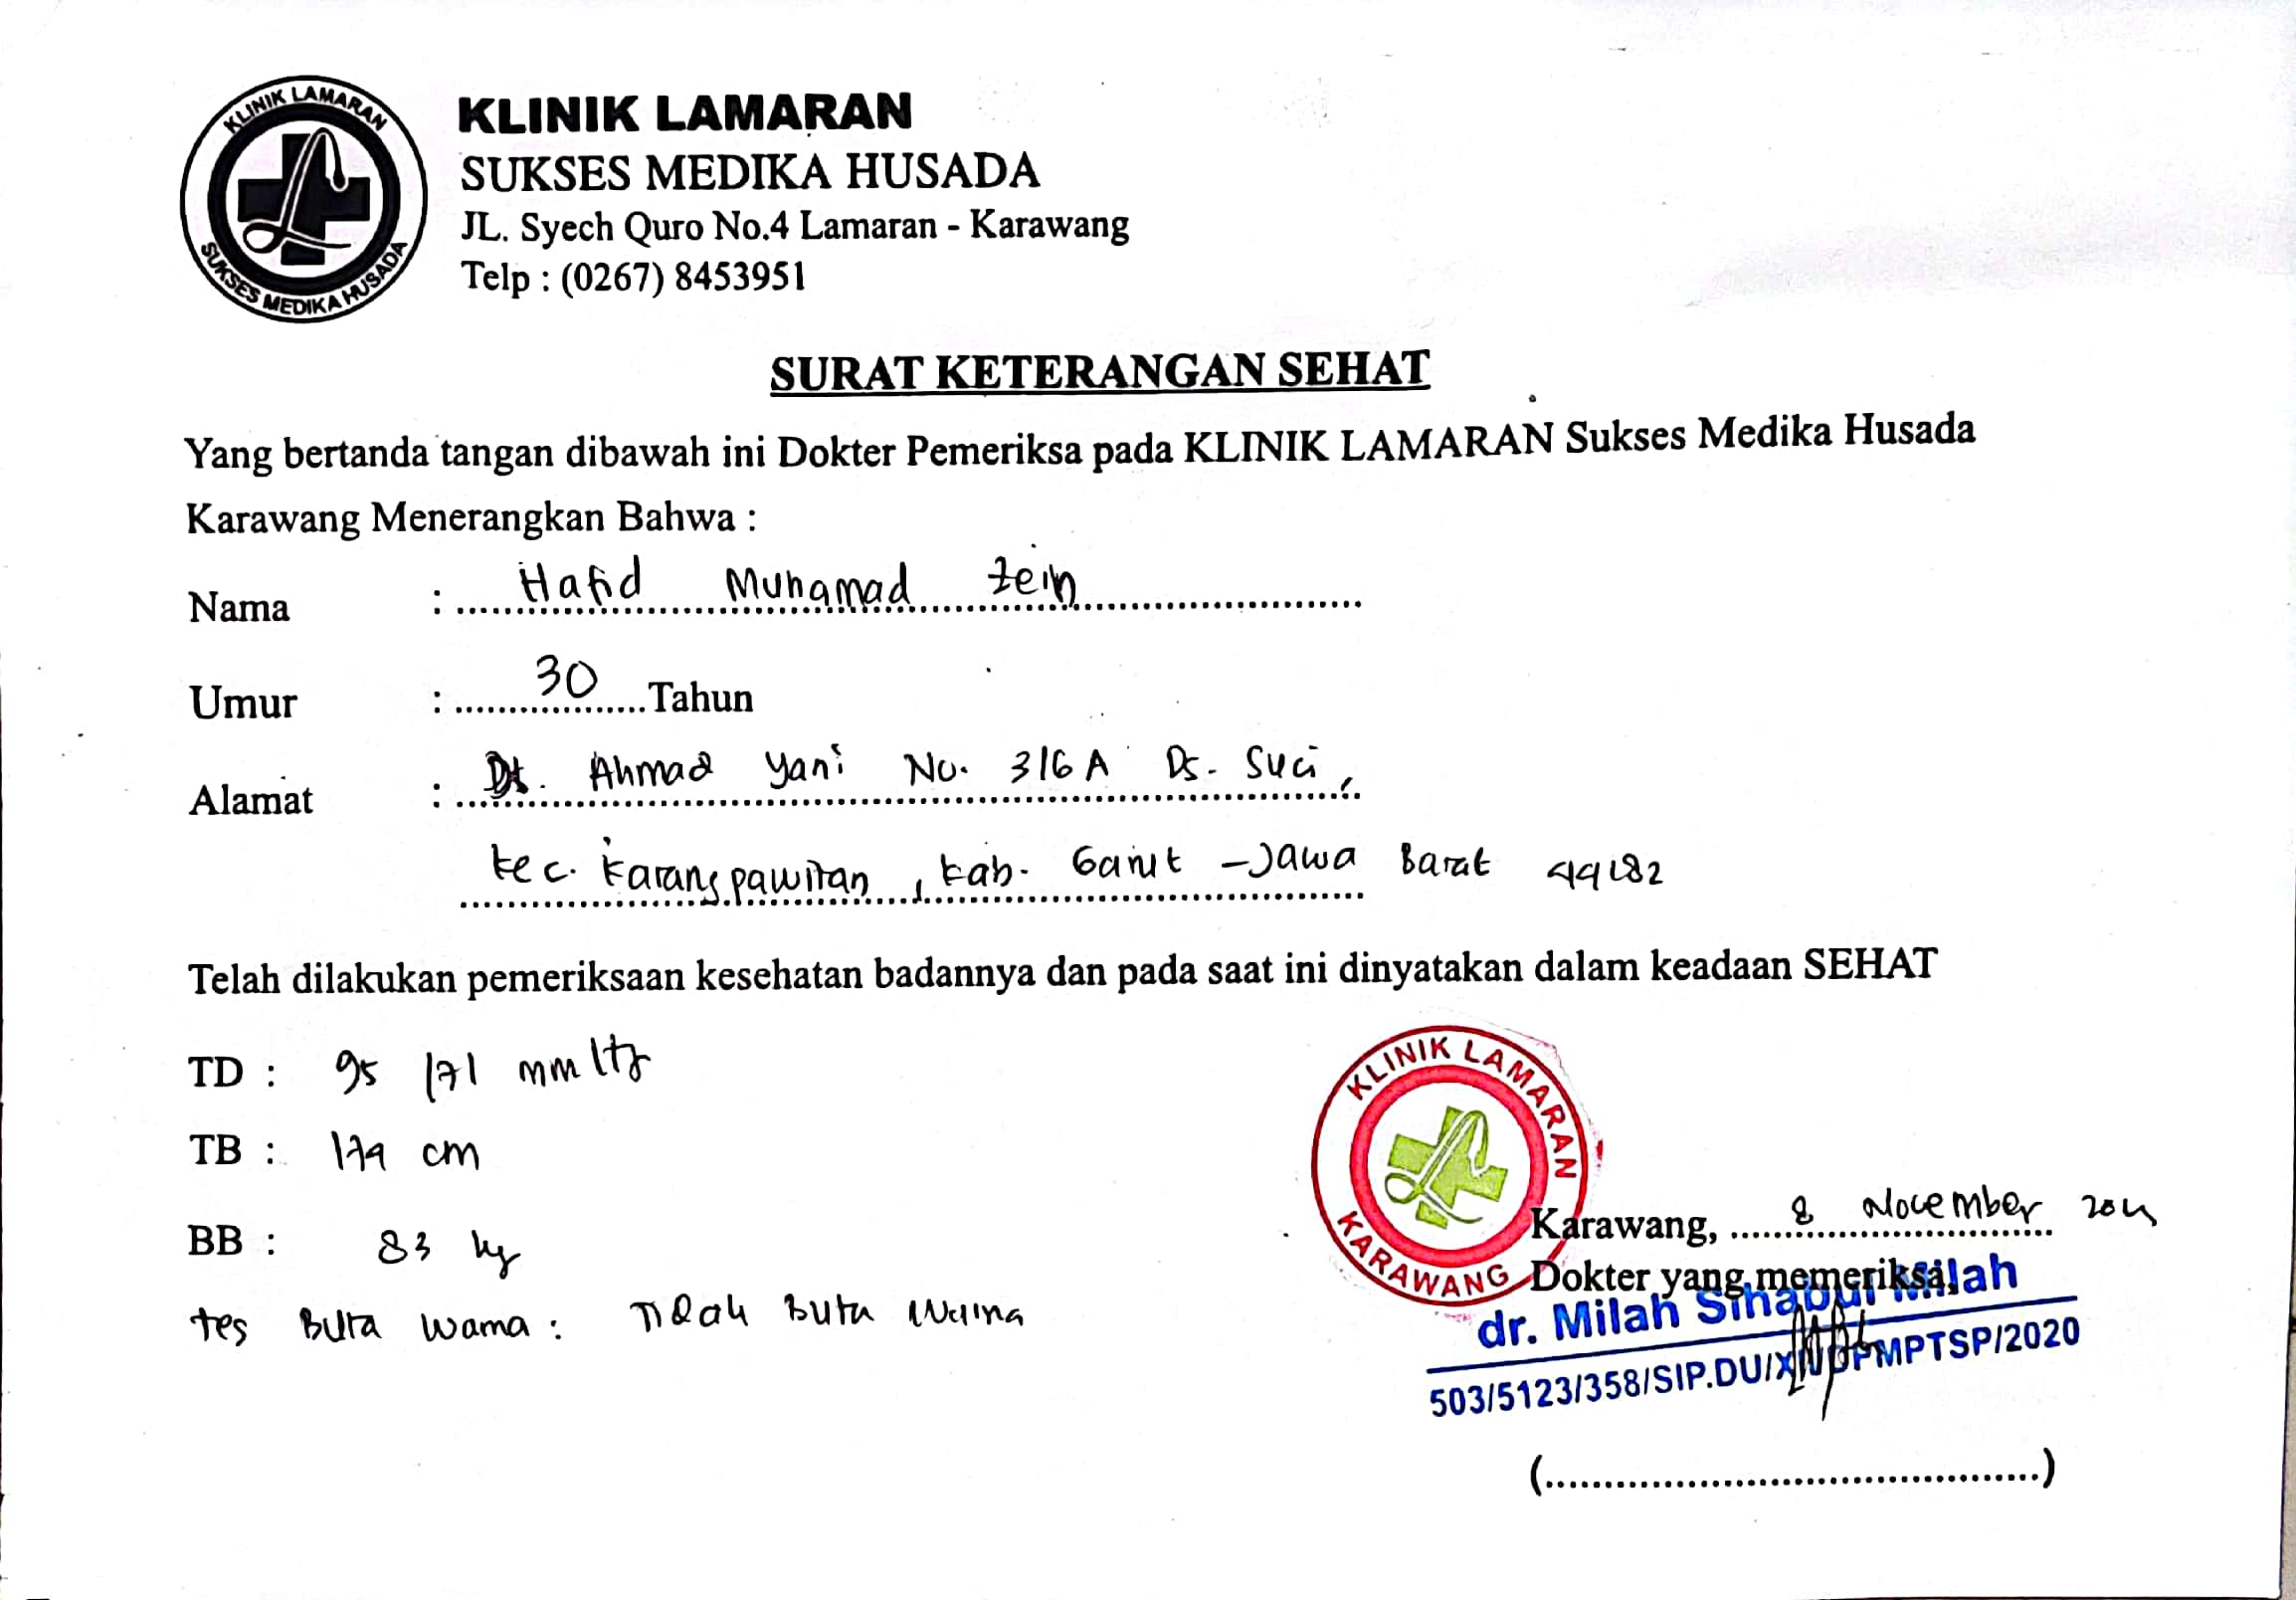 KLINIK LAMARAN
SUKSES MEDIKA HUSADA
KLINIK LAMARAN
SUKSES MEDIKA HUSADA
JL. Syech Quro No.4 Lamaran - Karawang
Telp : (0267) 8453951
SURAT KETERANGAN SEHAT
Yang bertanda tangan dibawah ini Dokter Pemeriksa pada KLINIK LAMARAN Sukses Medika Husada
Karawang Menerangkan Bahwa :
Nama : Hafid Muhamad Zein
Umur : 30 Tahun
Alamat : Ahmad Yani No. 316A Ds. Suci,
Kec. Karangpawitan, Kab. Garut - Jawa Barat 44182
Telah dilakukan pemeriksaan kesehatan badannya dan pada saat ini dinyatakan dalam keadaan SEHAT
TD : 95 /71 mmHg
TB : 179 cm
BB : 83 kg
tes Buta warna : Tidak Buta warna
KLINIK LAMARAN
KARAWANG
Karawang, 8 November
Dokter yang memeriksa,
dr. Milah Sihabul Milah
503/5123/358/SIP.DU/ /2020
(.........................................)